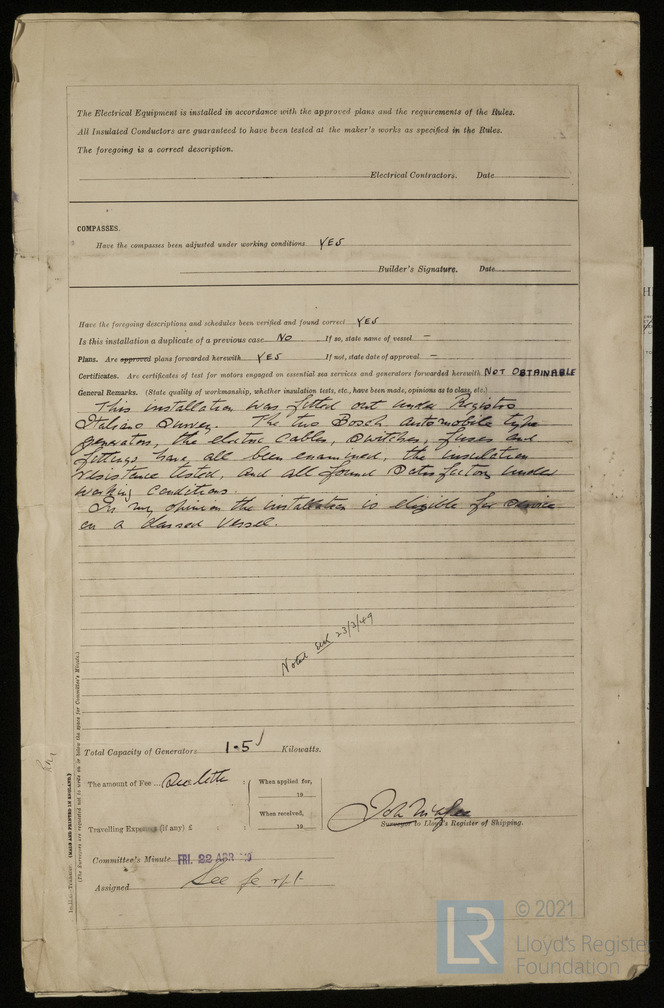 The Electrical Equipment is installed in accordance with the approved plans and the requirements of the Rules.
All Insulated Conductors are guaranteed to have been tested at the maker's works as specified in the Rules.
The foregoing is a correct description.
Electrical Contractors. Date
COMPASSES.
Have the compasses been adjusted under working conditions YES
Builder's Signature. Date
Have the foregoing descriptions and schedules been verified and found correct YES
Is this installation a duplicate of a previous case NO If so, state name of vessel —
Plans. Are approved plans forwarded herewith YES If not, state date of approval —
Certificates. Are certificates of test for motors engaged on essential sea services and generators forwarded herewith NOT OBTAINABLE
General Remarks. (State quality of workmanship, whether insulation tests, etc., have been made, opinions as to class, etc.)
This installation was fitted out under Registro
Italiano Survey. The two Bosch automobile type
generators, the electric cables, switches, fuses and
fittings have all been examined, the insulation
resistance tested, and all found satisfactory under
working conditions.
In my opinion the installation is eligible for service
on a classed vessel.
Noted 23/3/49
Total Capacity of Generators 1.5 Kilowatts.
The amount of Fee See letter : When applied for,
19
When received,
Travelling Expenses (if any) £ : : 19
Surveyor to Lloyd's Register of Shipping.
Committee's Minute FRI. 22 APR 19
Assigned See fe rpt
(MADE AND PRINTED IN ENGLAND.)
(The Surveyors are requested not to write on or below the space for Committee's Minute.)
LR
© 2021
Lloyd's Register
Foundation